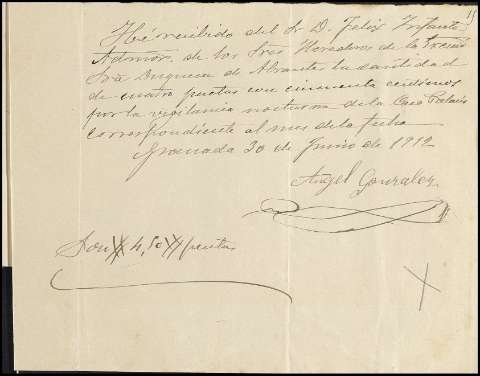 He recibido del Sr D. Felix Infante
Admor. de los Sres Herederos de la Excma
Sra Duquesa de Abrantes la cantidad
de cuatro pesetas con cincuenta centimos
por la vigilancia nocturna de la Casa Palacio
correspondiente al mes de la fecha
Granada 30 de Junio de 1912
Angel Gonzalez
Son 4,50 pesetas